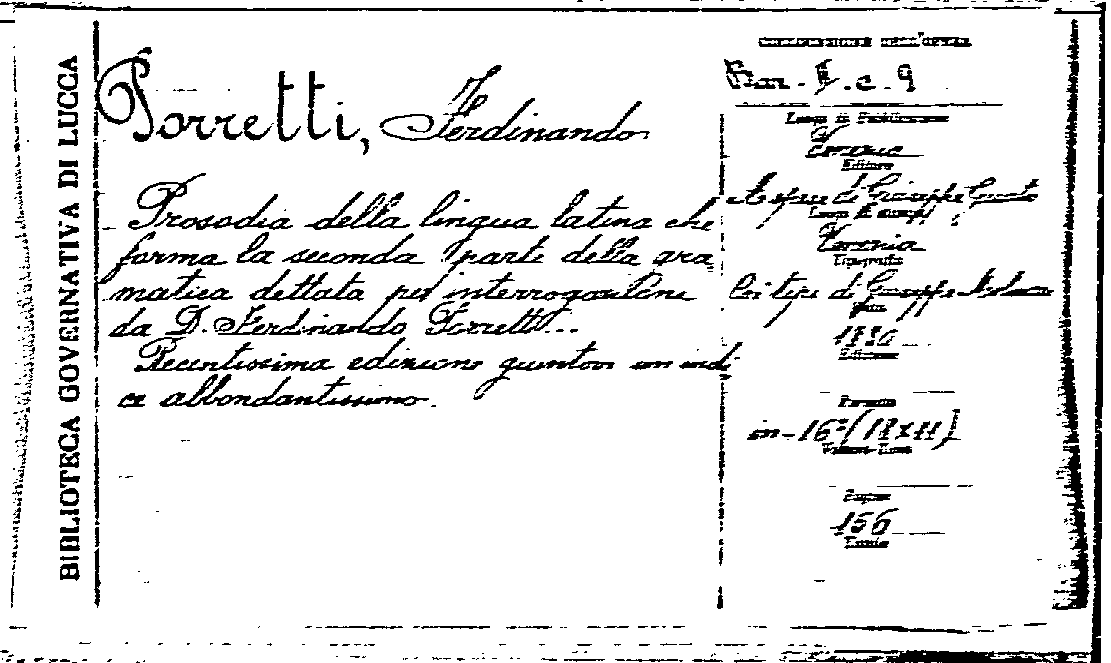 BIBLIOTECA GOVERNATIVA DI LUCCA
Porretti, Ferdinando
Prosodia della lingua latina che
forma la seconda parte della gra
matica dettata per interrogazione
da D. Ferdinando Porretti...
Recentissima edizione con indi
ce abbondantissimo.
c. 9
Luogo di Pubblicazione
Venezia
Editore
A spese di Giuseppe
Luogo di stampa
Venezia
Tipografia
Coi tipi di Giuseppe
Data
Edizione
Formato
in-16º (18x11)
Pagine
156